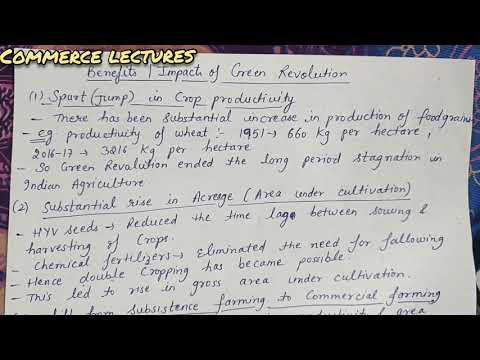 Commerce lectures
Benefits / Impact of Green Revolution
(1) Spurt (Jump) in Crop productivity
- There has been substantial increase in production of foodgrains
- eg productivity of wheat :- 1951 → 660 kg per hectare,
2016-17 → 3216 kg per hectare
- So Green Revolution ended the long period stagnation in
Indian Agriculture
(2) Substantial rise in Acreage (Area under cultivation)
- HYV seeds → Reduced the time lage between sowing &
harvesting of Crops.
- Chemical fertilizers → Eliminated the need for fallowing
- Hence double Cropping has became possible.
- This led to rise in gross area under cultivation.
from subsistence farming to Commercial farming
productivity & area